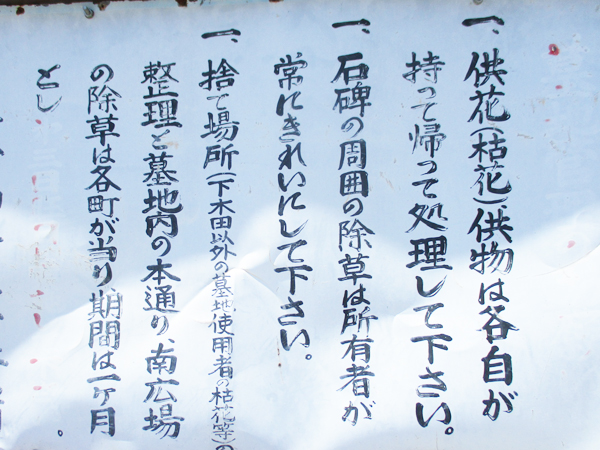 一、供花(枯花)供物は各自が
持って帰って処理して下さい。
一、石碑の周囲の除草は所有者が
常にきれいにして下さい。
一、捨て場所(下木田以外の墓地使用者の枯花等)の
整理と墓地内の本通り、南広場
の除草は各町が当り期間は一ヶ月
とし